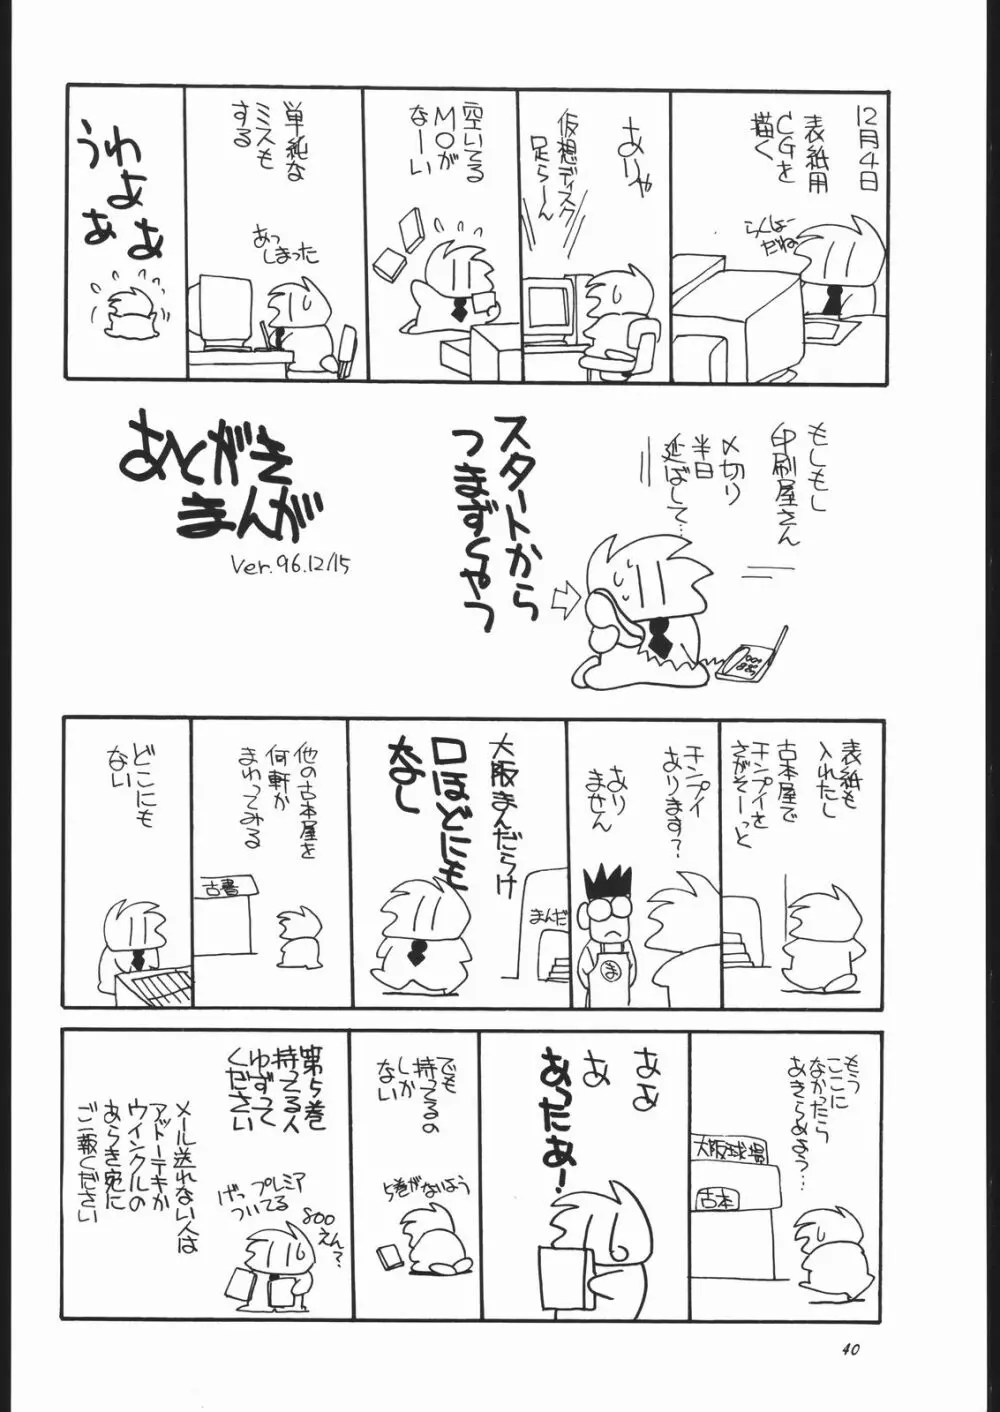 12月4日
表紙用
CGを
描く
らくしょー
だね
ありゃ
仮想ディスク
足らーん
空いてる
MOが
なーい
単純な
ミスも
する
あっ
しまった
うわ
よぁ
ぁ
あとがき
まんが
Ver.96.12/15
もしもし
印刷屋さん
〆切り
半日
延ばして…
スタートから
つまずくやつ
表紙も
入れたし
古本屋で
チンプイを
さがそーっと
チンプイ
あります?
あり
ません
ま
大阪まんだらけ
まんだ
口ほどにも
なし
他の古本屋を
何軒か
まわってみる
古書
どこにも
ない
もう
ここに
なかったら
あきらめよう…
大阪球場
古本
ああ
あ
あったぁー!
でも
持てるの
しか
ない
5巻がないよう
第5巻
持てる人
ゆずって
ください
げっ プレミア
ついてる
800
えん?
メール送れない人は
アットーテキか
ウインクルの
あらき宛に
ご一報ください
40